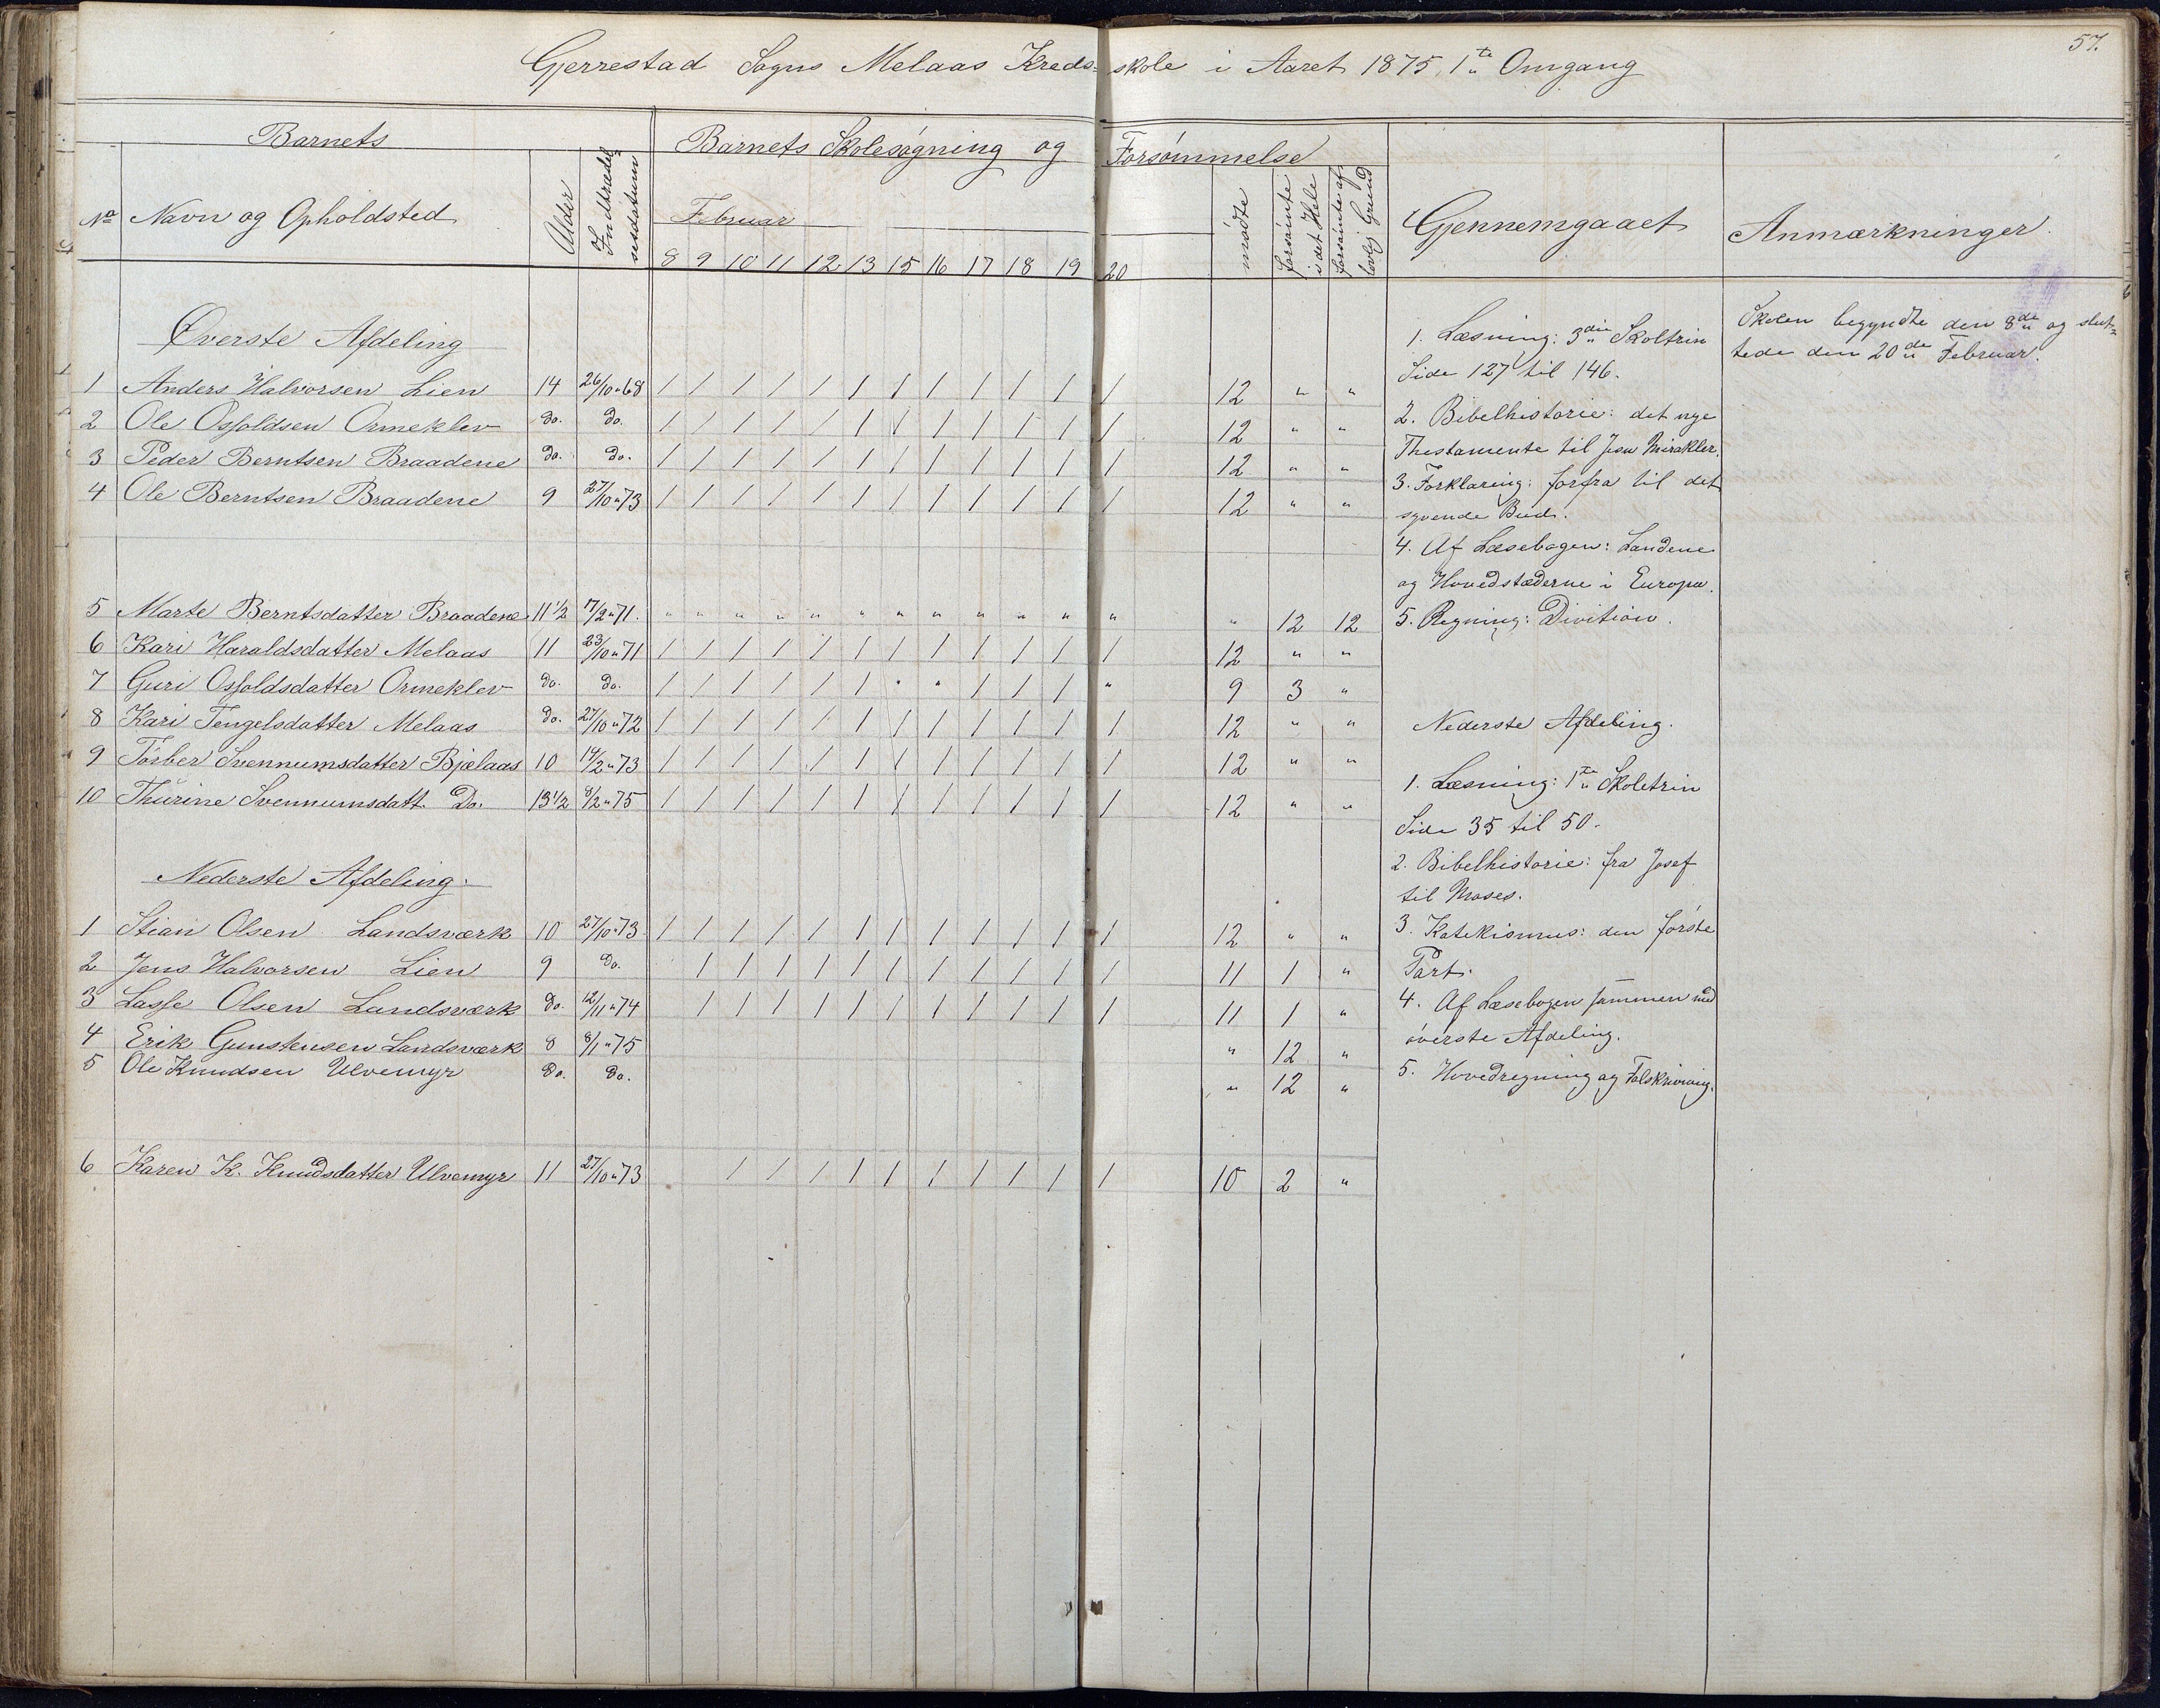 57.
Gjerrestad Sogns Melaas Kreds-skole i Aaret 1875, 1te Omgang
Barnets
Barnets Skolesøgning og Forsømmelse
No Navn og Opholdsted Alder Indtrædel- sesdatum Februar mødte forsømte i det Hele forsømte af lovlig Grund Gjennemgaaet Anmærkninger.
8 9 10 11 12 13 15 16 17 18 19 20
Øverste Afdeling
1 Anders Halvorsen Lien 14 26/10 " 68 / / / / / / / / / / / / 12 " "
2 Ole Osfoldsen Ormeklev do. do. / / / / / / / / / / / / 12 " "
3 Peder Berntsen Braadene do. do. / / / / / / / / / / / / 12 " "
4 Ole Berntsen Braadene 9 27/10 " 73 / / / / / / / / / / / / 12 " "
5 Marte Berntsdatter Braadene 11 1/2 17/2 " 71. " " " " " " " " " " " " " 12 12
6 Kari Haraldsdatter Melaas 11 23/10 " 71 / / / / / / / / / / / / 12 " "
7 Guri Osfoldsdatter Ormeklev do. do. / / / / / / " " / / / " 9 3 "
8 Kari Tengelsdatter Melaas do. 27/10 " 72 / / / / / / / / / / / / 12 " "
9 Torber Svennumsdatter Bjelaas 10 14/2 " 73 / / / / / / / / / / / / 12 " "
10 Thurine Svennumsdatt. Do. 13 1/2 8/2 " 75 / / / / / / / / / / / / 12 " "
Nederste Afdeling.
1 Stian Olsen Landsværk 10 27/10 " 73 / / / / / / / / / / / / 12 " "
2 Jens Halvorsen Lien 9 do. / / / / / / / / / / / 11 1 "
3 Lasse Olsen Landsværk do. 12/11 " 74 / / / / / / / / / / / 11 1 "
4 Erik Gunstensen Landsværk 8 8/1 " 75 " 12 "
5 Ole Knudsen Ulvemyr do. do. " 12 "
6 Karen K. Knudsdatter Ulvemyr 11 27/10 " 73 / / / / / / / / / / 10 2 "
1. Læsning: 3die Skoltrin
Side 127 til 146.
2. Bibelhistorie: det nye
Thestamente til Jesu Mirakler.
3. Forklaring: forfra til det
syvende Bud.
4. Af Læsebogen: Landene
og Hovedstæderne i Europa.
5. Regning: Division.
Nederste Afdeling.
1. Læsning: 1te Skoletrin
Side 35 til 50.
2. Bibelhistorie: fra Josef
til Moses.
3. Katekismus: den første
Part.
4. Af Læsebogen sammen med
øverste Afdeling.
5. Hovedregning og Talskrivning.
Skolen begyndte den 8de og slut-
tede den 20de Februar.